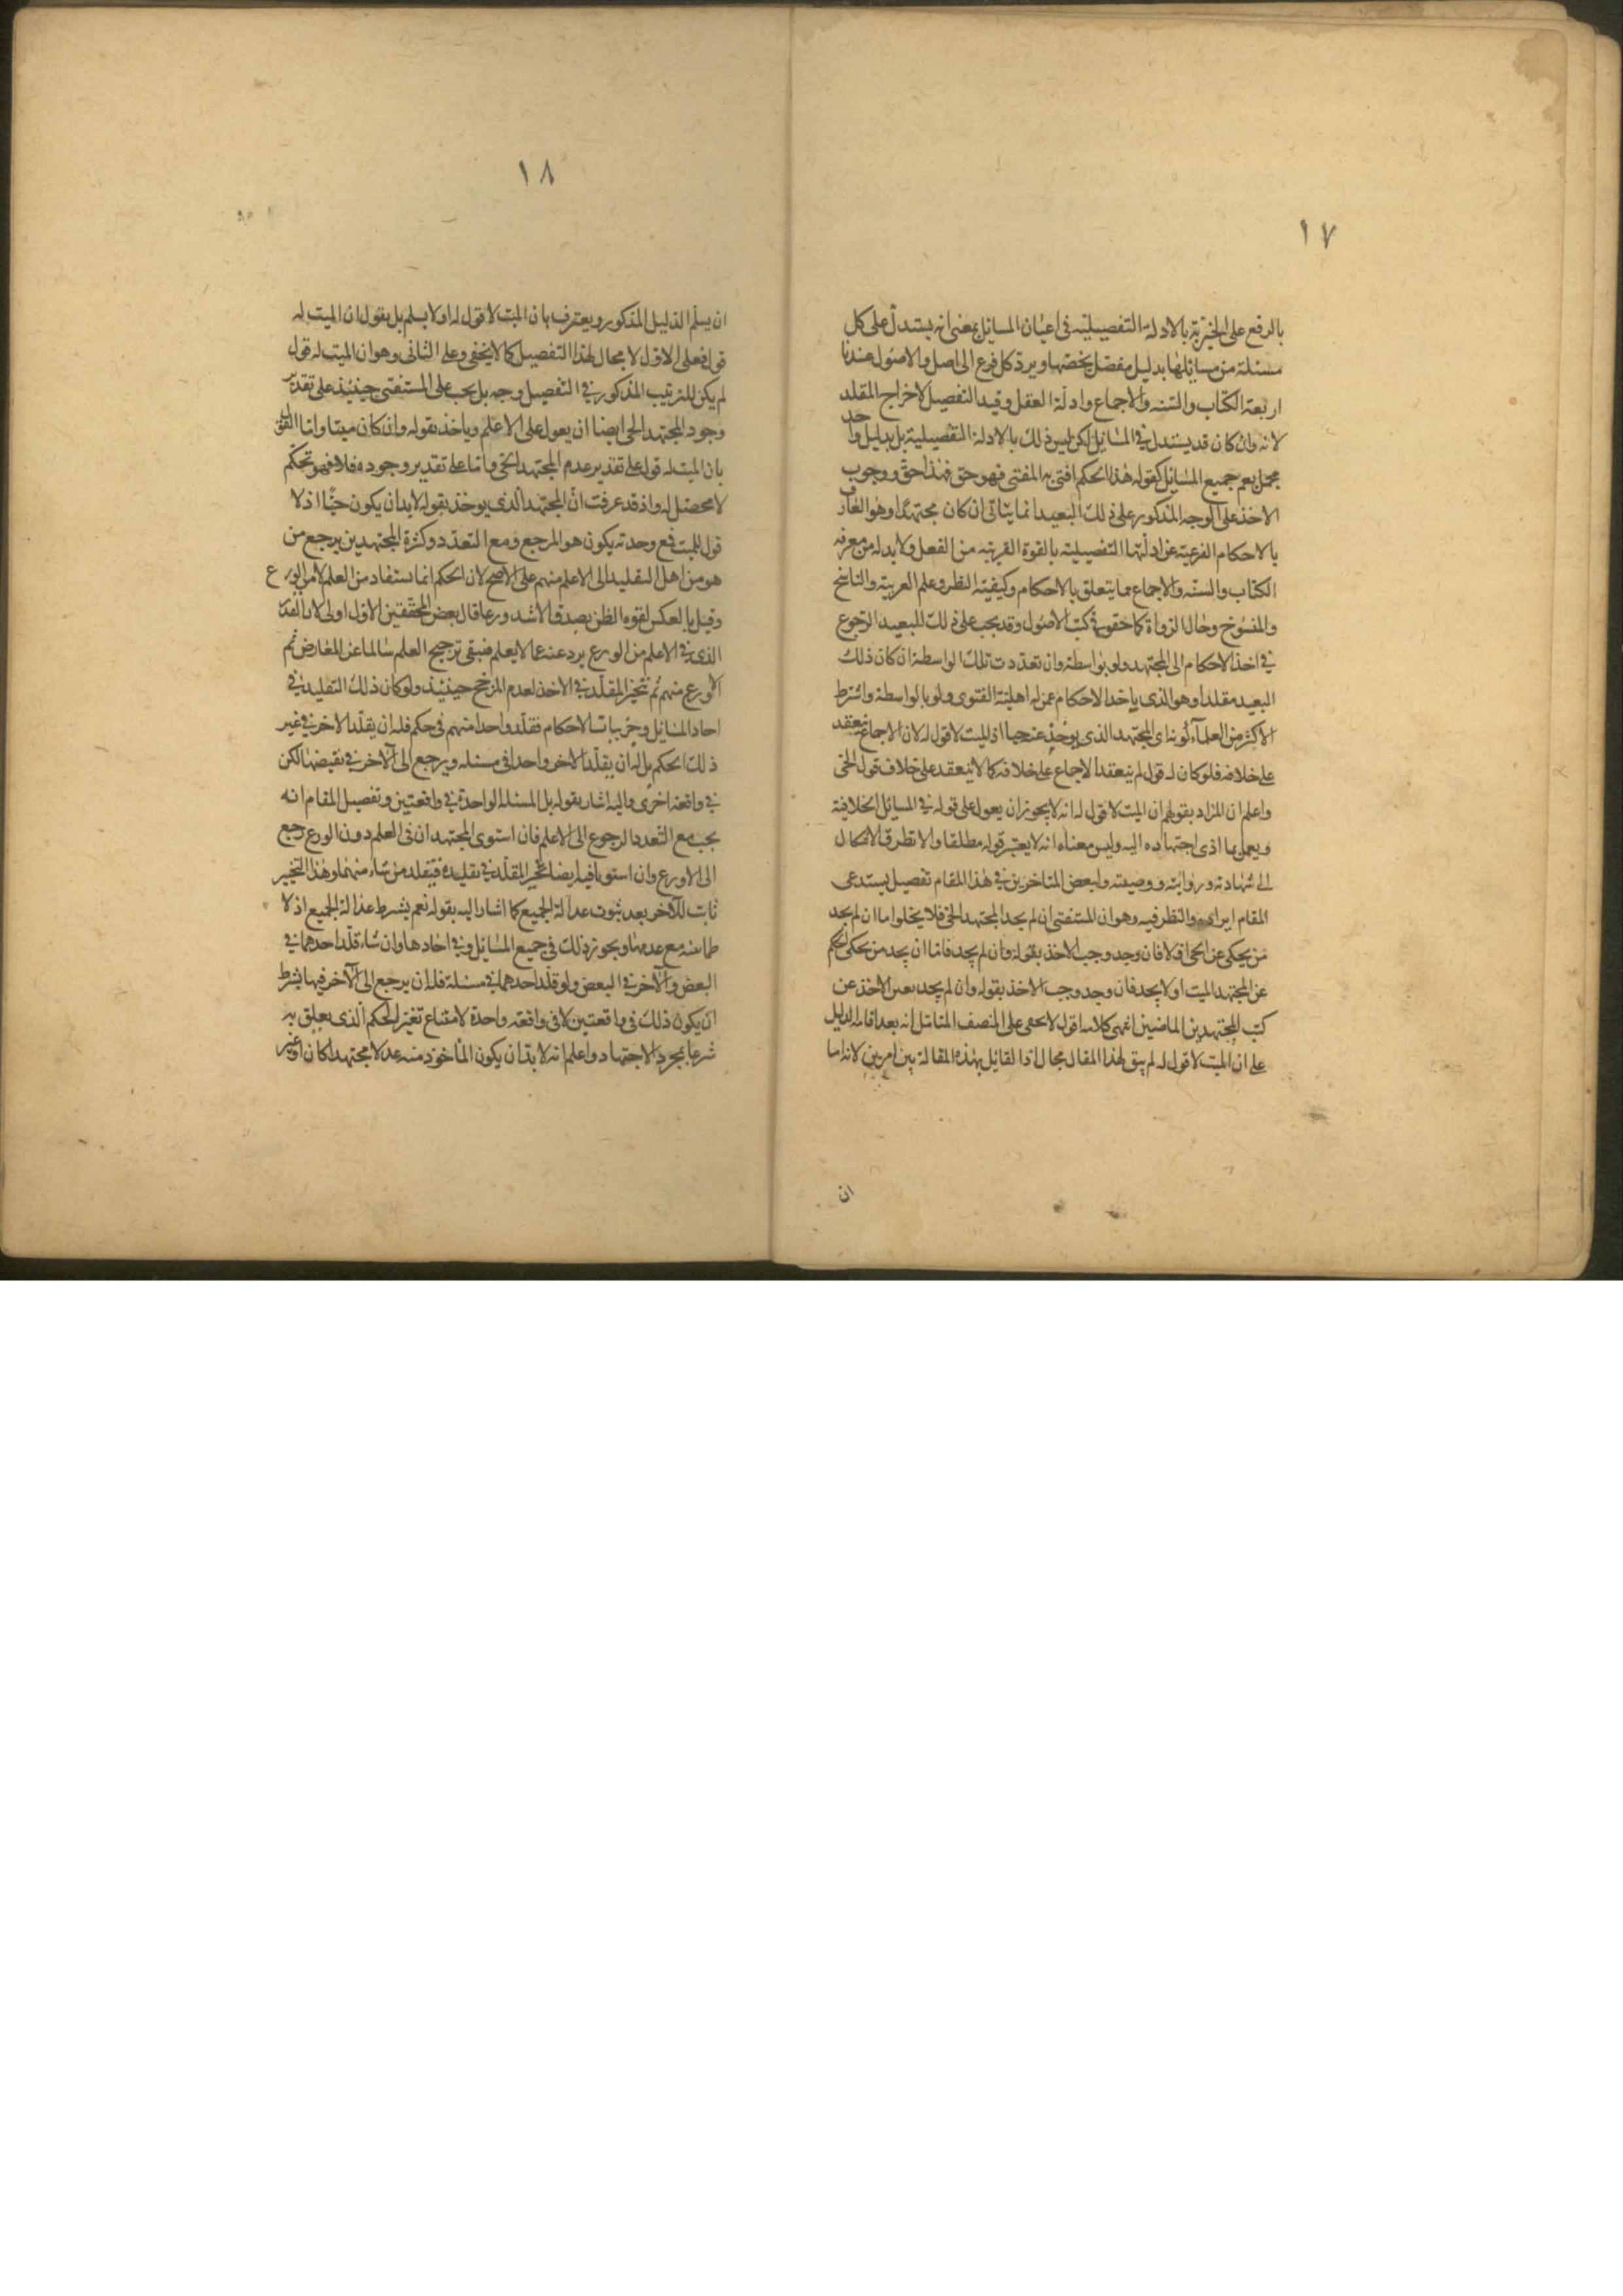 ١٧
بالرفع على الخبرية بالادلة التفصيلية فى اعيان المسائل بمعنى انه يستدل على كل
مسئلة من مسائلها بدليل مفصل يخصها ويرد كل فرع الى اصل والاصول عندنا
اربعة الكتاب والسنه والاجماع وادلة العقل وقيد التفصيل لاخراج المقلد
لانه وان كان قد يستدل فى المسائل لكن ليس ذلك بالادلة التفصيلية بل بدليل واحد
مجمل يعم جميع المسائل كقوله هذا الحكم افتى به المفتى فهو حق فهذا حق ووجوب
الاخذ على الوجه المذكور على ذلك البعيد انما يتاتى ان كان مجتهدًا وهو العارف
بالاحكام الفرعية عن ادلتها التفصيلية بالقوة القريبة من الفعل ولا بد له من معرفه
الكتاب والسنه والاجماع مما يتعلق بالاحكام وكيفية النظر وعلم العربية والناسخ
والمنسوخ وحال الرواة كما حققوه فى كتب الاصول وقد يجب على ذلك البعيد الرجوع
فى اخذ الاحكام الى المجتهد ولو بواسطة وان تعددت تلك الواسطة ان كان ذلك
البعيد مقلدا وهو الذى ياخذ الاحكام عمن له اهلية الفتوى ولو بالواسطة واشترط
الاكثر من العلمآء كونه اى المجتهد الذى يوخذ عنه حيا اذ الميت لا قول له لان الاجماع ينعقد
على خلافه فلو كان له قول لم ينعقد الاجماع على خلافه كما لا ينعقد على خلاف قول الحى
واعلم ان المراد بقولهم ان الميت لا قول له انه لا يجوز ان يعول على قوله فى المسائل الخلافية
ويعمل بما ادى اجتهاده اليه وليس معناه انه لا يعتبر قوله مطلقا والا تطرق الاشكال
الى شهادته وروايته ووصيته ولبعض المتاخرين فى هذا المقام تفصيل يستدعى
المقام ايراده والنظر فيه وهو ان المستفتى ان لم يجد المجتهد الحى فلا يخلو اما ان لم يجد
من يحكى عن الحى اولا فان وجد وجب الاخذ بقوله وان لم يجد فاما ان يجد من يحكى الحكم
عن المجتهد الميت اولا يجد فان وجد وجب الاخذ بقوله وان لم يجد تعين الاخذ عن
كتب المجتهدين الماضين انتهى كلامه اقول لا يخفى على المنصف المتامل انه بعد اقامه الدليل
على ان الميت لا قول له لم يبق لهذا المقال مجال اذ القائل بهذه المقالة بين امرين لانه اما
ان
١٨
ان يسلم الدليل المذكور ويعترف بان الميت لا قول له اولا يسلم بل يقول ان الميت له
قول فعلى الاول لا مجال لهذا التفصيل كما لا يخفى وعلى الثانى وهو ان الميت له قول
لم يكن للترتيب المذكور فى التفصيل وجه بل يجب على المستفتى حينئذ على تقدير
وجود المجتهد الحى ايضا ان يعول على الاعلم وياخذ بقوله وان كان ميتا واما القول
بان الميت له قول على تقدير عدم المجتهد الحى واما على تقدير وجوده فلا فهو تحكم
لا محصل له واذ قد عرفت ان المجتهد الذى يوخذ بقوله لا بد ان يكون حيًا اذ لا
قول للميت فمع وحدته يكون هو المرجع ومع التعدد وكثرة المجتهدين يرجع من
هو من اهل التقليد الى الاعلم منهم على الاصح لان الحكم انما يستفاد من العلم لا من الورع
وقيل بالعكس لقوه الظن بصدق الاشد ورعا قال بعض المحققين الاول اولى لان القدر
الذى فى الاعلم من الورع يردعه عما لا يعلم فيبقى ترجيح العلم سالما عن المعارض ثم
الاورع منهم ثم يتخير المقلد فى الاخذ لعدم المرجح حينئذ ولو كان ذلك التقليد فى
احاد المسائل وجزييات الاحكام فقلد واحدا منهم فى حكم فله ان يقلد الاخر فى غير
ذلك الحكم بل له ان يقلد الاخر واحدا فى مسئله ويرجع الى الآخر فى نقيضها لكن
فى واقعة اخرى واليه اشار بقوله بل المسئلة الواحدة فى واقعتين وتفصيل المقام انه
يجب مع التعدد الرجوع الى الاعلم فان استوى المجتهدان فى العلم دون الورع رجع
الى الاورع وان استويا فيه ايضا تخير المقلد فى تقليده فيقلد من شاء منهما وهذا التخيير
ثابت للآخر بعد ثبوت عدالة الجميع كما اشار اليه بقوله نعم يشترط عدالة الجميع اذ لا
طمانينه مع عدمها ويجوز ذلك فى جميع المسائل وفى احادها وان شاء قلد احدهما فى
البعض والآخر فى البعض ولو قلد احدهما فى مسئلة فله ان يرجع الى الآخر فيها بشرط
ان يكون ذلك فى واقعتين لا فى واقعه واحدة لامتناع تغير الحكم الذى يعلق به
شرعا بمجرد الاجتهاد واعلم انه لا بد ان يكون الماخوذ منه عدلا مجتهدا كان او غير